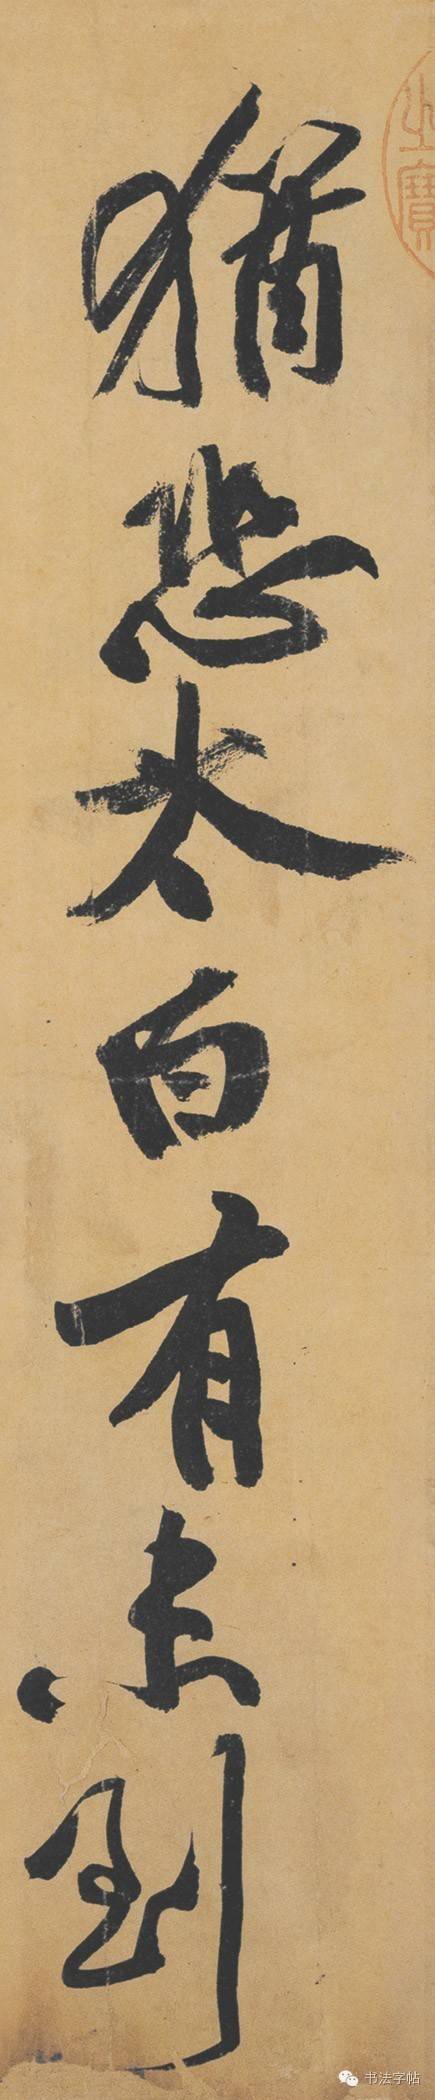 猶恐太白有未到
之寶
书法字帖